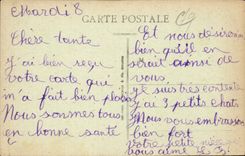 Mardi 8
CARTE POSTALE
Chère tante
J'ai bien reçu
votre carte qui
m'a fait bien plaisir
Nous sommes tous
en bonne santé
Et nous désirons
bien qu'il en
serait ainsi de
vous.
je suis très contente
j'ai 3 petits chats
Nous vous embrassons
bien fort
votre petite nièce
vous aime